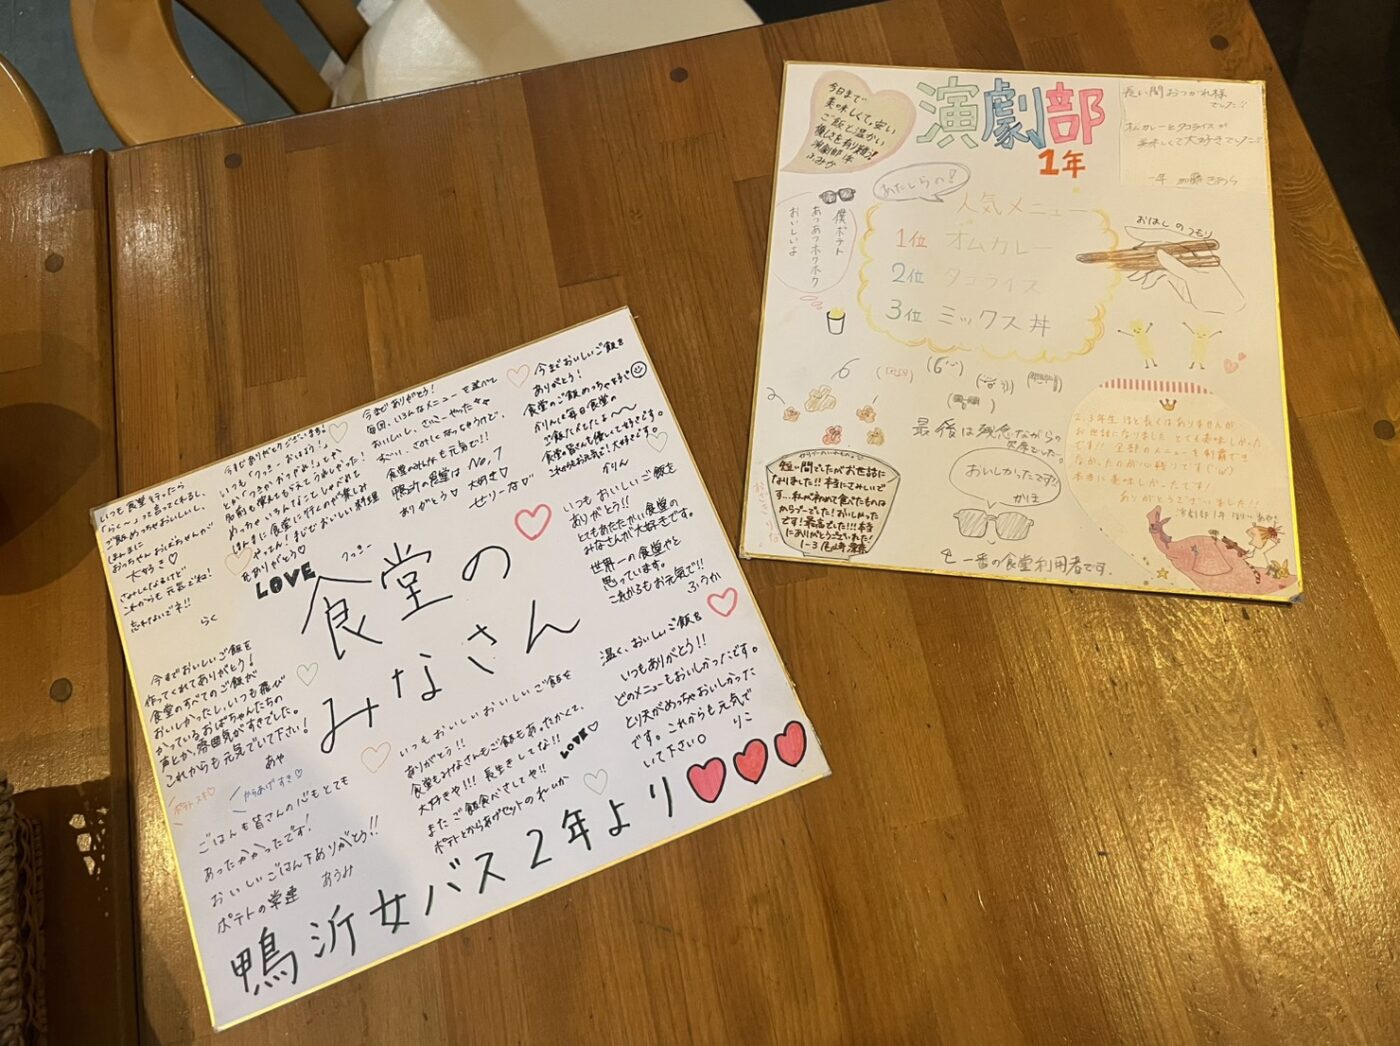 いつも食堂行ったら
「らく〜」って言ってくれるし、
ご飯めっちゃおいしいし、
ほんまに
おっちゃん、おばあちゃんが
大好き♡
さみしくなるけど
これからも元気でね!
忘れないでネ!!
らく
今までありがとうございます!
いつも「つっきー おはよう!」
とか「つっきーおつかれ!」とか
名前も覚えてもらえてうれしかった!
めっちゃいろんなことしゃべれて
ほんまに食堂に行くのが楽しみ
やってん!まじでおいしい料理
をありがとう♡
つっきー
今までありがとう!
毎回、いろんなメニューを並べて
おいしいし、さいこーやったサ
おらへんくて
食堂のみんなも元気で!!
鴨沂の食堂は No,1
ありがとう♡ 大好き♡
せりーな♡
今までおいしいご飯を
ありがとう!
食堂のご飯めっちゃ好き
かりんは毎日食堂の
ご飯たべたよ〜〜
食堂の皆さんも優しくて好きです。
これからもお元気で!大好きです。
かりん
いつもおいしいご飯を
ありがとう!!
とてもあたたかい食堂の
みなさんが大好きです。
世界一の食堂やと
思っています。
これからもお元気で!!
ふうか
LOVE
食堂の
みなさん
今までおいしいご飯を
作ってくれてありがとう!
食堂のすべてのご飯が
おいしかったし、いつも飛び
かっているおばちゃんたちの
声とか、雰囲気がすきでした。
これからも元気でいて下さい!
あや
ポテトスキ♡
からあげすき♡
ごはんも皆さんの心もとても
あったかかったです!
おいしいごはんをありがとう!!
ポテトの常連 あうみ
いつもおいしいおいしいご飯を
ありがとう!!
食堂もみなさんもご飯もあったかくて、
大好きや!!! 長生きしてな!! LOVE♡
またご飯食べさしてや!!
ポテトとからあげセットのれいか
温く、おいしいご飯を
いつもありがとう!!
どのメニューもおいしかったです。
とり天がめっちゃおいしかった
です。これからも元気で
いて下さい○ りこ
鴨沂女バス2年より
今日まで
美味しくて、安い
ご飯と温かい
優しさを有り難う!
演劇部1年
ふみか
演劇部
1年
長い間おつかれ様
でした!!
オムカレーとタコライスが
美味しくて大好きでした
一年 加藤 さわら
僕ポテト
あつあつホクホク
おいしいよ
あたしらの!
人気メニュー
1位 オムカレー
2位 タコライス
3位 ミックス丼
おはしのつもり
最後は残念ながらの
欠席でした。
短い間でしたがお世話に
なりました!!本当にさみしいで
す…私が初めて食べたものは
からあ丼でした!おいしかった
です!最高でした!!!本当
にありがとうございました!
1-3 尾崎
おいしかったです!!
かりま
一番の食堂利用者です.
2,3年生ほど長くはありませんが
お世話になりました とても美味しかった
です!! 全部のメニューを制覇でき
なかったのが心残りです
本当に美味しかったです!
ありがとうございました!
演劇部1年